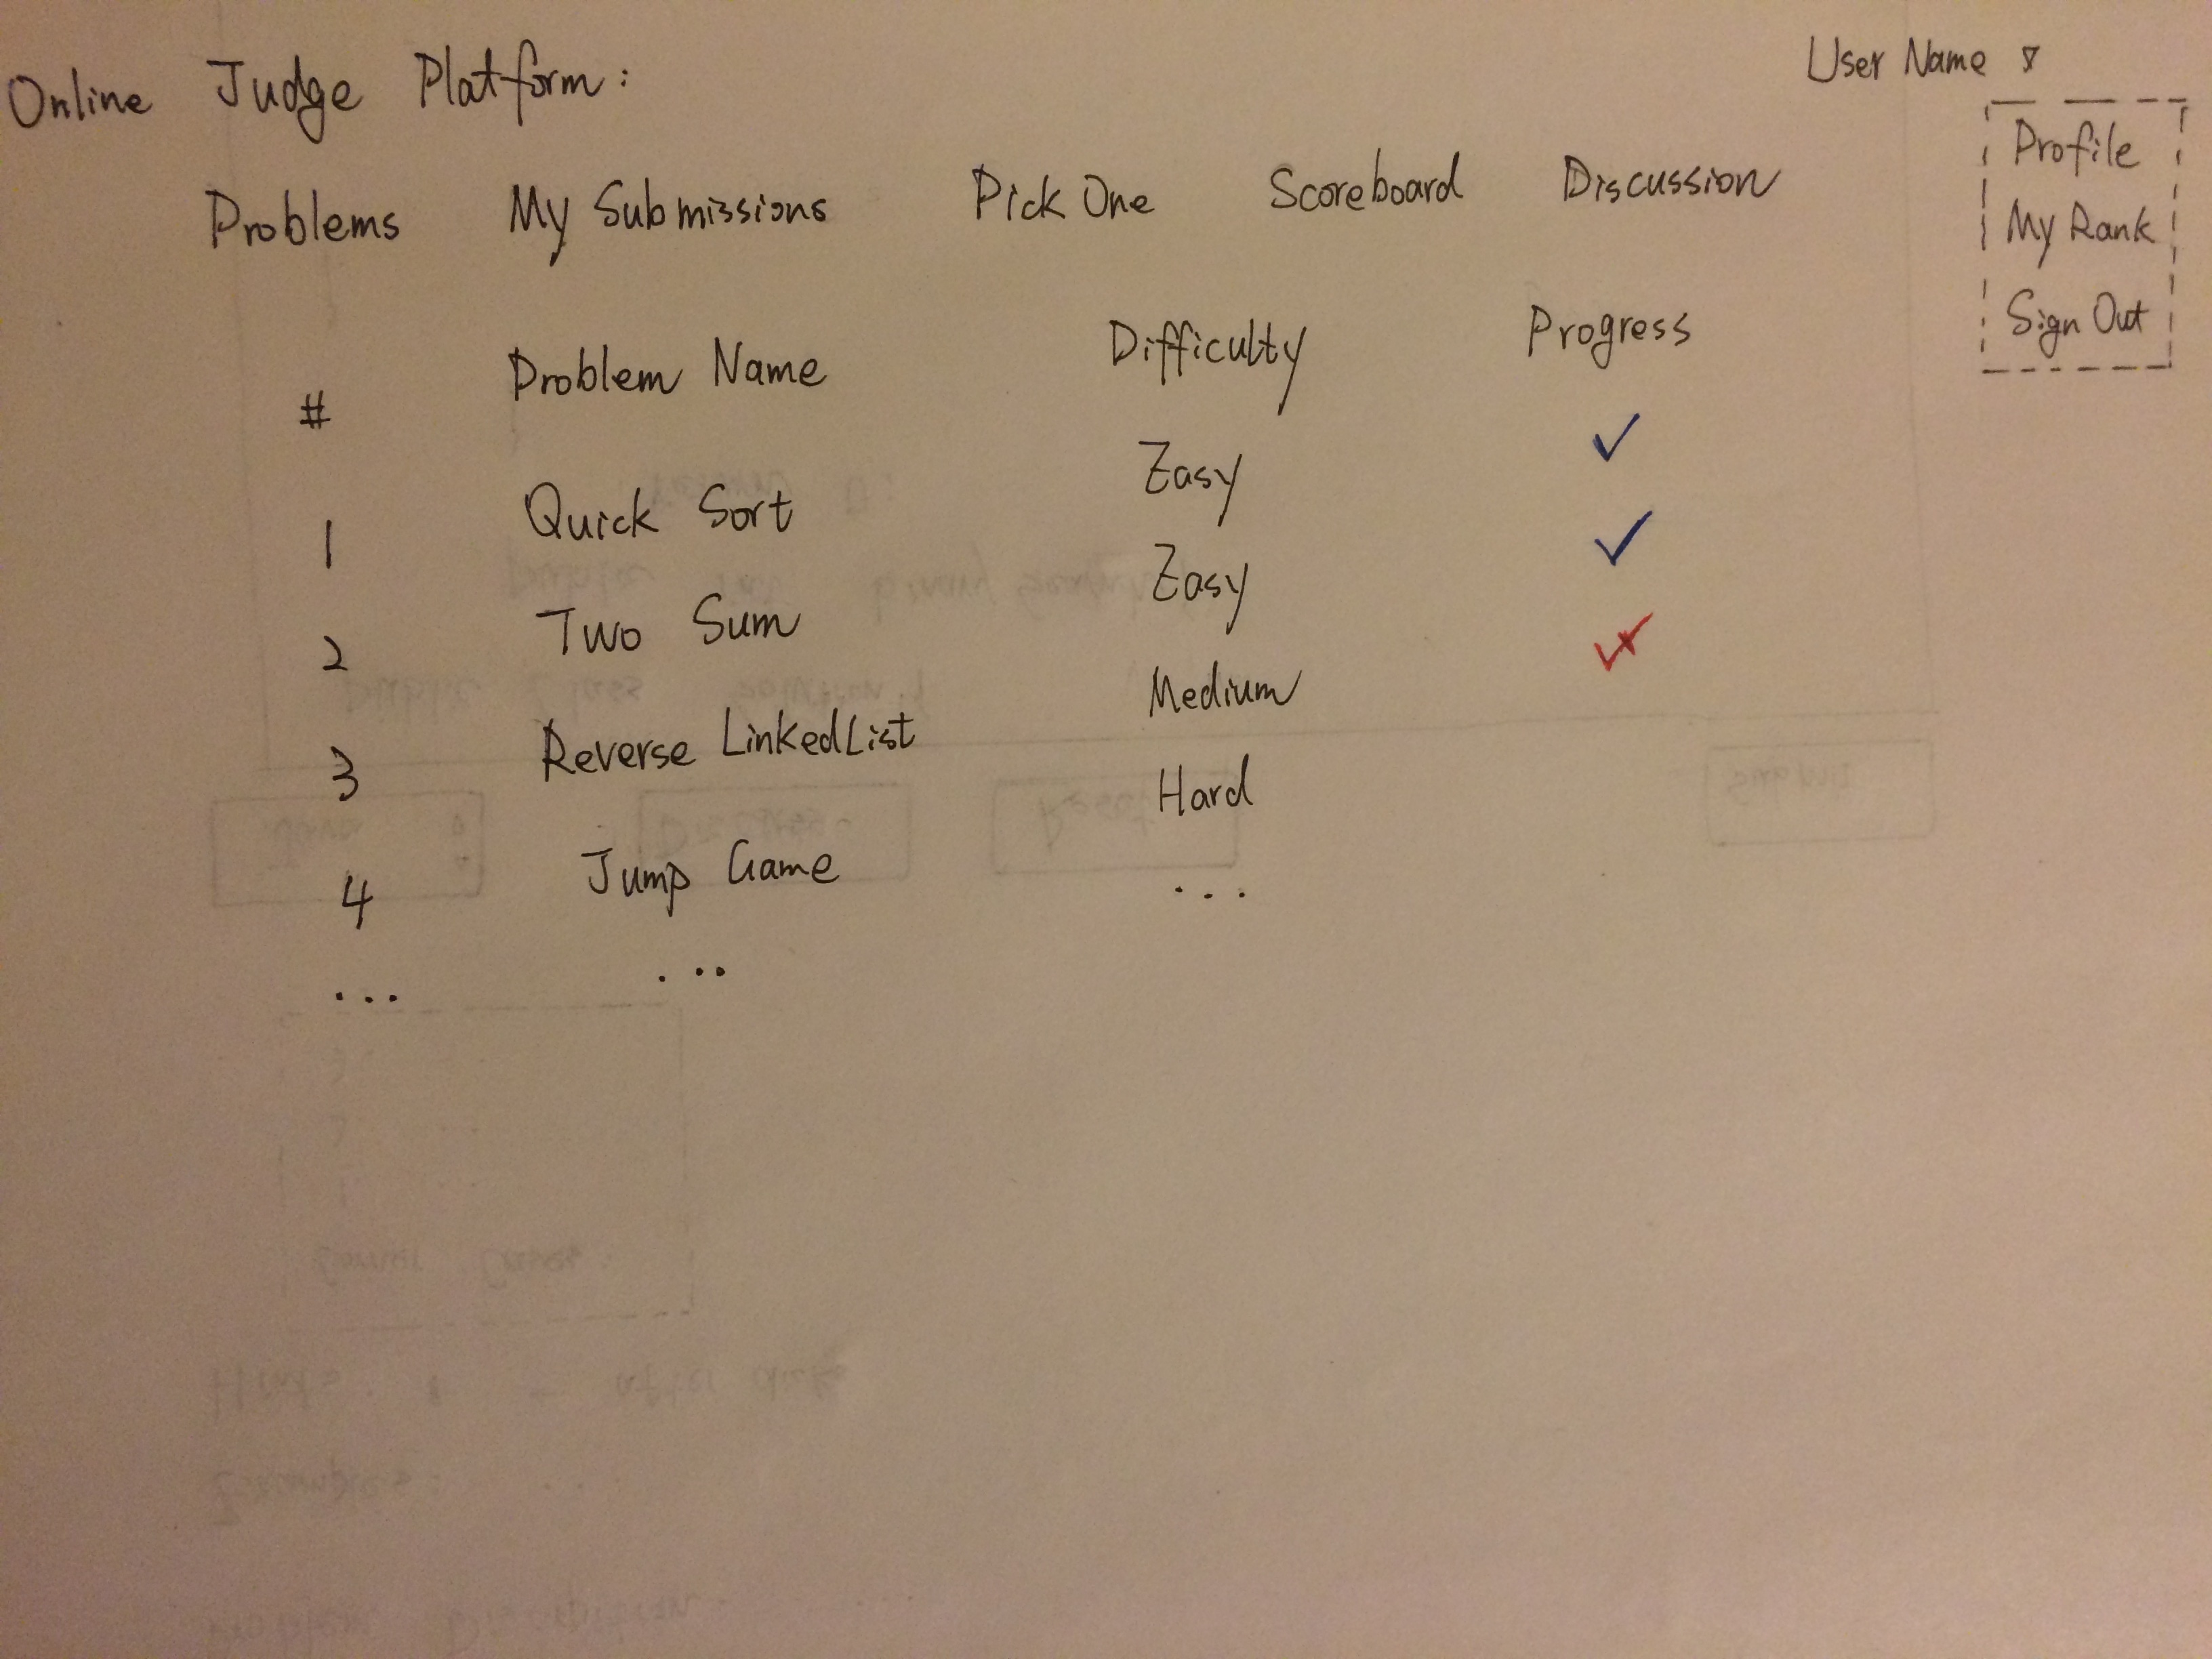 Online Judge Platform:
User Name ▽
Profile
My Rank
Sign Out
Problems My Submissions Pick One Scoreboard Discussion
# Problem Name Difficulty Progress
1 Quick Sort Easy ✓
2 Two Sum Easy ✓
3 Reverse LinkedList Medium
4 Jump Game Hard
... ... ...